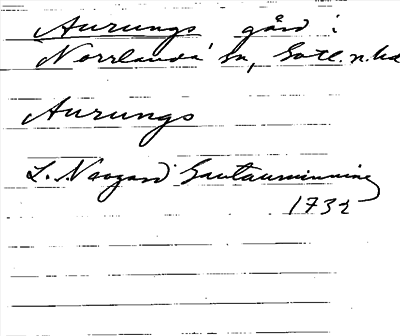 Aurungs gård i
Norrlanda sn, Gotl. n. hd
Aurungs
L. Neogard Gautauminning
1732